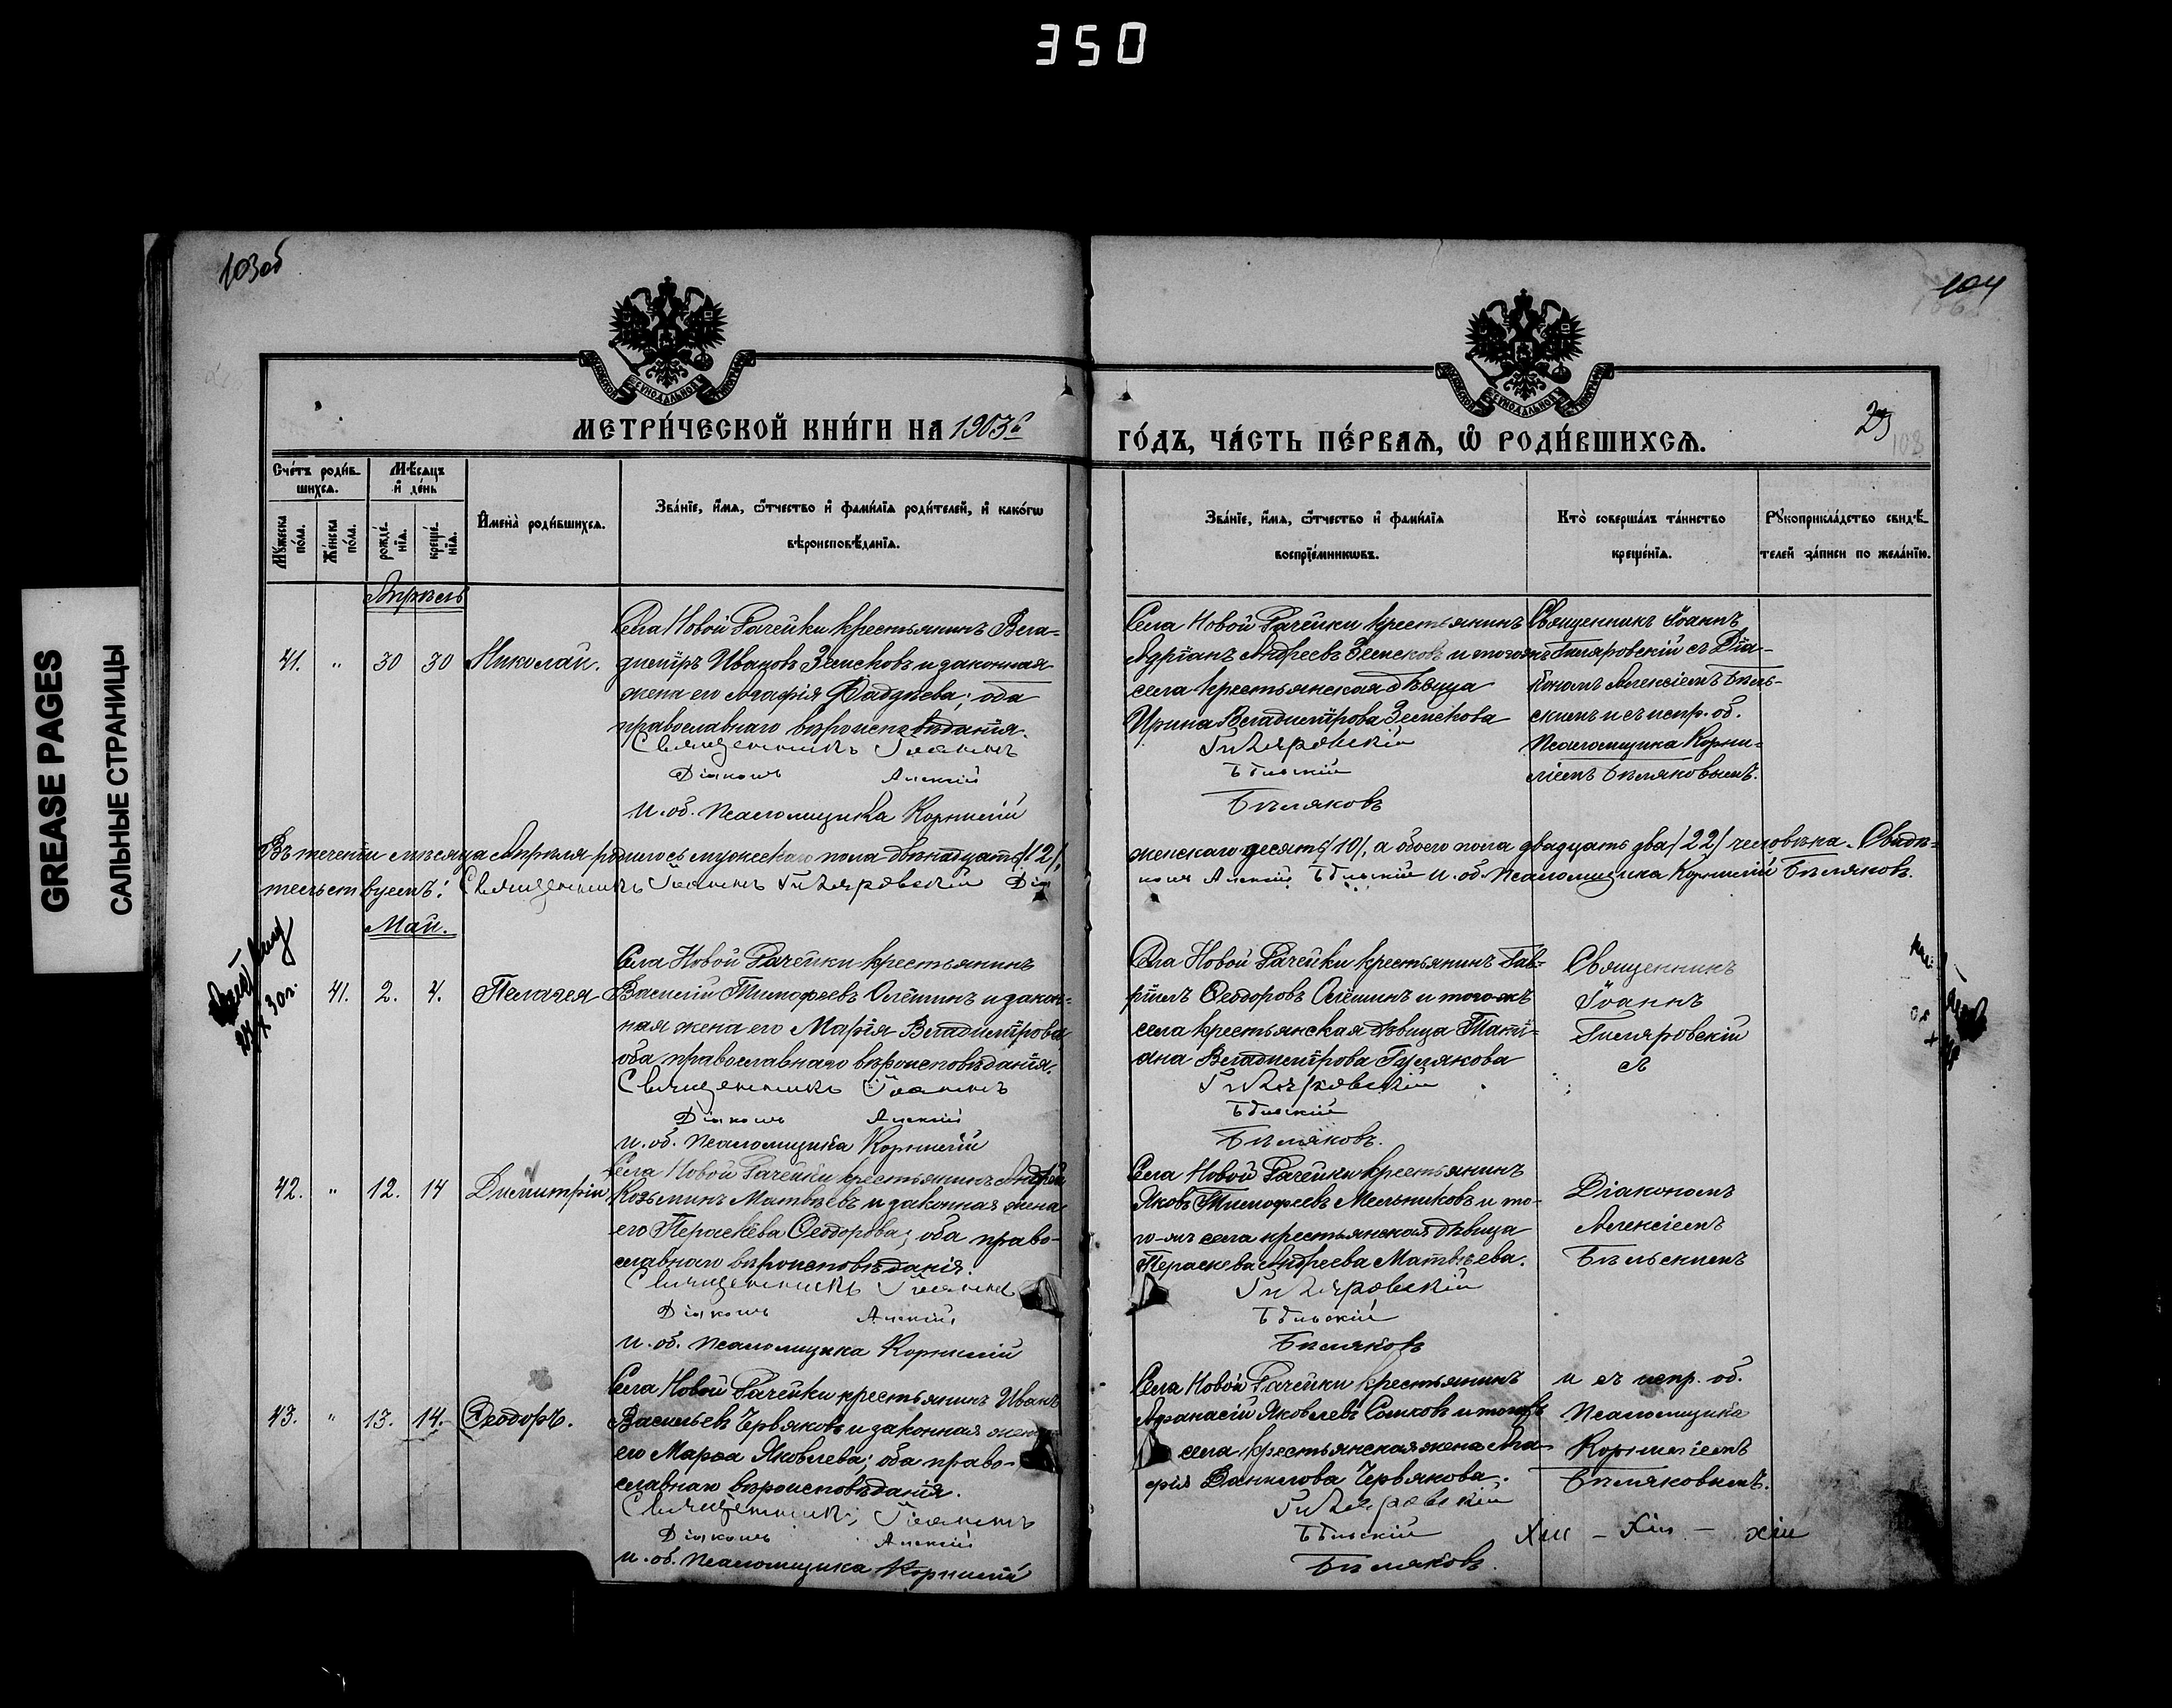 350
103об
104
GREASE PAGES
САЛЬНЫЕ СТРАНИЦЫ
МЕТРИ́ЧЕСКОЙ КНИ́ГИ НА 1903й
ГО́ДЪ, ЧА́СТЬ ПЕ́РВАѦ, Ѡ҆ РОДИ́ВШИХСѦ.
108
Сче́тъ роди́в-
шихсѧ.
Мѣ́сѧцъ
и҆ де́нь
Мꙋ́жеска
по́ла.
Же́нска
по́ла.
рожде́-
нїѧ.
креще́-
нїѧ.
И҆мена̀ роди́вшихсѧ.
Зва́нїе, и҆́мѧ, ѻ҆́тчество и҆ фами́лїѧ роди́телей, и҆ како́гѡ
вѣроисповѣ́данїѧ.
Зва́нїе, и҆́мѧ, ѻ҆́тчество и҆ фами́лїѧ
воспрїе́мникѡвъ.
Кто̀ соверша́лъ та́инство
креще́нїѧ.
Рꙋкоприкла́дство свидѣ́-
телей за́писи по жела́нїю.
Апрѣль
41. " 30 30 Николай.
Села Новой Рачейки крестьянинъ Вла-
димiръ Ивановъ Земсковъ и законная
жена его Агафiя Фадѣева; оба
православнаго вѣроисповѣданiя.
Священникъ Iоаннъ
Дiаконъ Алексiй
И. об. Псаломщика Корнилiй
Села Новой Рачейки крестьянинъ
Адрiанъ Андреевъ Земсковъ и того жъ
села крестьянская дѣвица
Ирина Владимiрова Земскова
Гиляровскiй
Бѣльскiй
Бѣляковъ
Священникъ Iоаннъ
Гиляровскiй съ Дiа-
кономъ Алексiемъ Бѣль-
скимъ и съ испр. об.
Псаломщика Корни-
лiемъ Бѣляковымъ.
Въ теченiи мѣсяца Апрѣля родилось мужескаго пола двѣнадцать /12/,
женскаго десять /10/, а обоего пола двадцать два /22/ человѣка. Свидѣ-
тельствуемъ: Священникъ Iоаннъ Гиляровскiй Дiа
конъ Алексiй Бѣльскiй И. об. Псаломщика Корнилiй Бѣляковъ.
Май.
41. 2. 4. Пелагея
Села Новой Рачейки крестьянинъ
Василiй Тимофеевъ Олёшинъ и закон-
ная жена его Марiя Владимiрова
оба православнаго вѣроисповѣданiя.
Священникъ Iоаннъ
Дiаконъ Алексiй
И. об. Псаломщика Корнилiй
Села Новой Рачейки крестьянинъ Гав-
рiилъ Ѳеодоровъ Олёшинъ и того жъ
села крестьянская дѣвица Татi-
ана Владимiрова Гуслякова
Гиляровскiй
Бѣльскiй
Бѣляковъ.
Священникъ
Iоаннъ
Гиляровскiй
42. " 12. 14 Димитрiй
Села Новой Рачейки крестьянинъ Андрей
Козьминъ Матвѣевъ и законная жена
его Параскева Ѳеодорова; оба право-
славнаго вѣроисповѣданiя.
Священникъ Iоаннъ
Дiаконъ Алексiй
И. об. Псаломщика Корнилiй
Села Новой Рачейки крестьянинъ
Яковъ Тимофеевъ Мельниковъ и то-
го-жъ села крестьянская дѣвица
Параскева Андреева Матвѣева.
Гиляровскiй
Бѣльскiй
Бѣляковъ
Дiакономъ
Алексiемъ
Бѣльскимъ
43. " 13. 14. Ѳеодоръ.
Села Новой Рачейки крестьянинъ Иванъ
Васильевъ Червяковъ и законная жена
его Марѳа Яковлева; оба право-
славнаго вѣроисповѣданiя.
Священникъ Iоаннъ
Дiаконъ Алексiй
И. об. Псаломщика Корнилiй
Села Новой Рачейки крестьянинъ
Афанасiй Яковлевъ Сомковъ и тогожъ
села крестьянская жена Ага-
фiя Данилова Червякова.
Гиляровскiй
Бѣльскiй
Бѣляковъ.
и съ испр. об.
Псаломщика
Корнилiемъ
Бѣляковымъ.